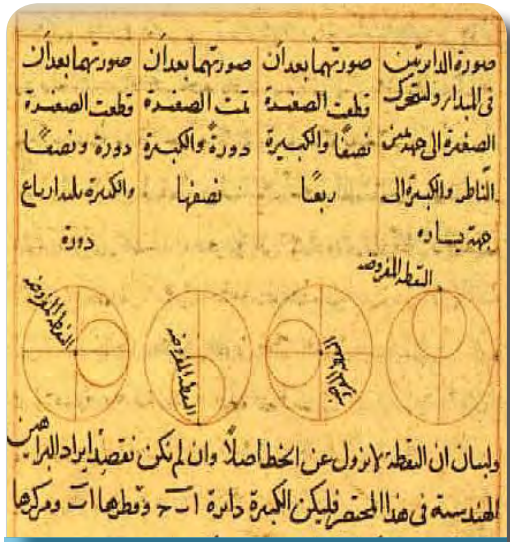 صورة الدائرتين
فى المبدأ ولتتحرك
الصغيرة الى جهة يمين
الناظر والكبيرة الى
جهة يساره
صورتهما بعد ان
قطعت الصغيرة
نصفًا والكبيرة
ربعًا
صورتهما بعد ان
تمت الصغيرة
دورةً والكبيرة
نصفها
صورتهما بعد ان
قطعت الصغيرة
دورة ونصفًا
والكبيرة ثلثة ارباع
دورة
النقطة المفروضة
النقطة المفروضة
النقطة المفروضة
ولبيان ان النقطة لا تزول عن الخط اصلًا وان لم نكن نقصد ايراد البراهين
الهندسية فى هذا المختصر فليكن الكبيرة دائرة اب ح وقطرها اب ومركزها